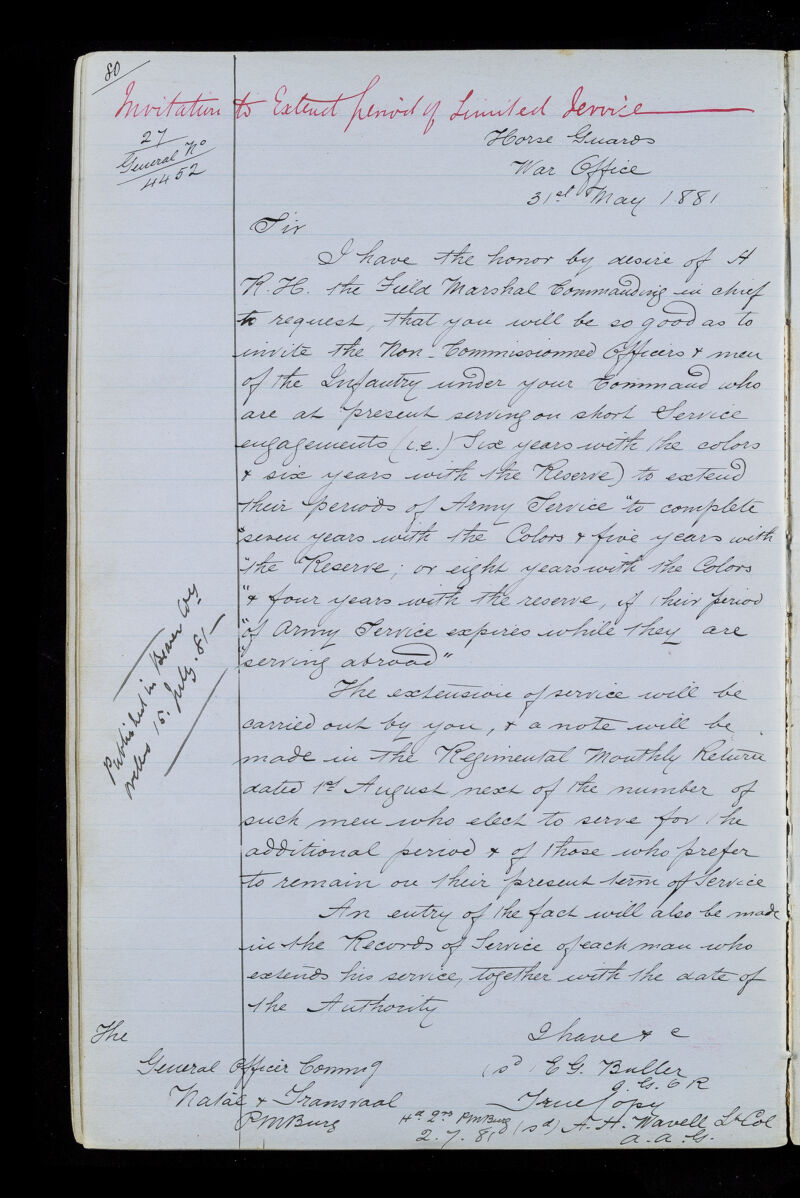 80
Invitation to Extend period of Limited Service
27
General No
4452
Horse Guards
War Office
31st May 1881
Sir
I have the honor by desire of H
R.H. the Field Marshal Commanding in chief
to request, that you will be so good as to
invite the Non-Commissionned Officers & men
of the Infantry under your Command who
are at present serving on short Service
engagements (i.e.) Six years with the colors
& six years with the Reserve) to extend
their periods of Army Service "to complete
"seven years with the Colors & five years with
"the Reserve; or eight years with the Colors
"& four years with the reserve, if their period
"of Army Service expires while they are
"serving abroad"
The extension of service will be
carried out by you, & a note will be
made in the Regimental Monthly Return
dated 1st August next of the number of
such men who elect to serve for the
additional period & of those who prefer
to remain on their present term of Service
An entry of the fact will also be made
in the Records of Service of each man who
extends his service, together with the date of
the Authority
Published in
orders 15. July. 81
I have & c
(sd) E G. Buller
The
General Officer Commg
Natal & Transvaal
PMBurg
True Copy
Hd Qrs PMBurg
2.7.81
(sd) A. H. Wavell Lt Col
a.a.G.